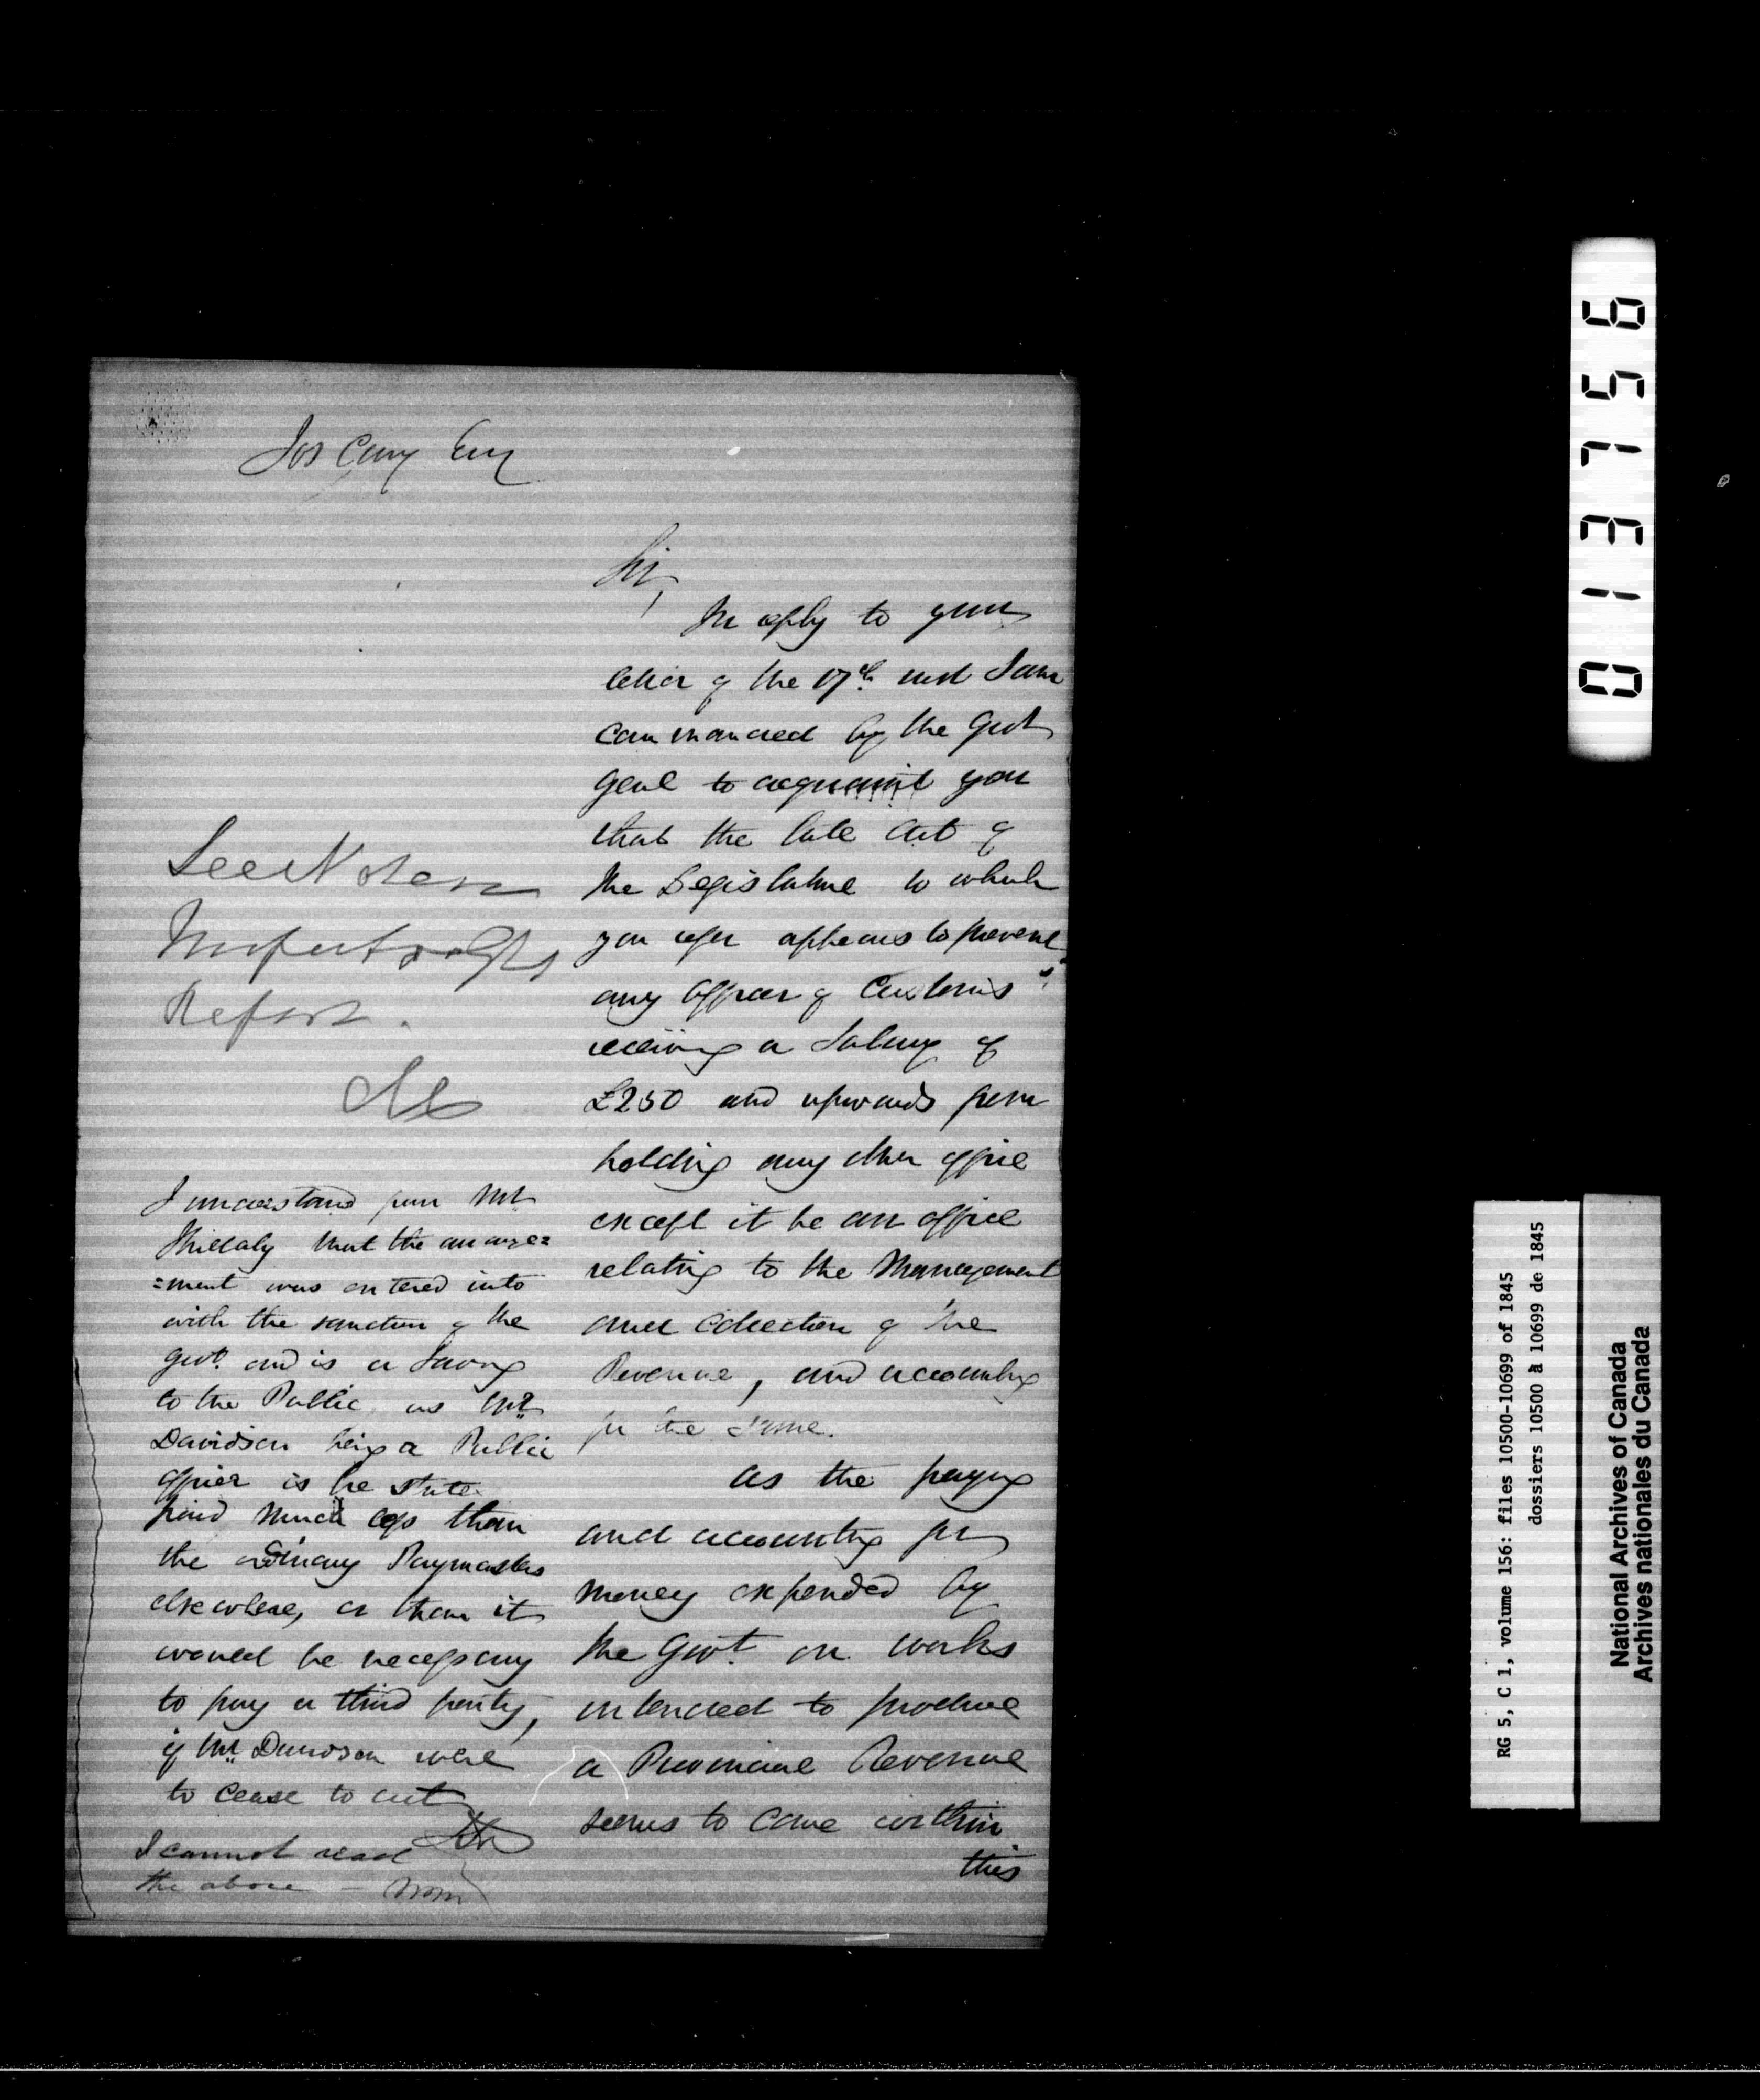 Jos Cary Esq
Sir,
In reply to your
letter of the 17th inst I am
commanded by the Govr
Genl to acquaint you
that the late Act of
the Legislature to which
you refer appears to prevent
any Officer of Customs
receiving a Salary of
£250 and upwards from
holding any other office
except it be an office
relating to the Management
and Collection of the
Revenue, and accounting
for the same.
As the paying
and accounting for
money expended by
the Govt. on works
intended to produce
a Provincial Revenue
seems to come within
this
See Note on
Inspector Genls
Report.
I understand from Mr
Killaly that the arrange=
=ment was entered into
with the sanction of the
Govt. and is a saving
to the Public as Mr.
Davidson being a Public
officer is he states
paid much less than
the ordinary Paymasters
elsewhere, or than it
would be necessary
to pay a third party,
if Mr. Davidson were
to cease to act
I cannot read
the above —
013756
RG 5, C 1, volume 156: files 10500-10699 of 1845
dossiers 10500 à 10699 de 1845
National Archives of Canada
Archives nationales du Canada